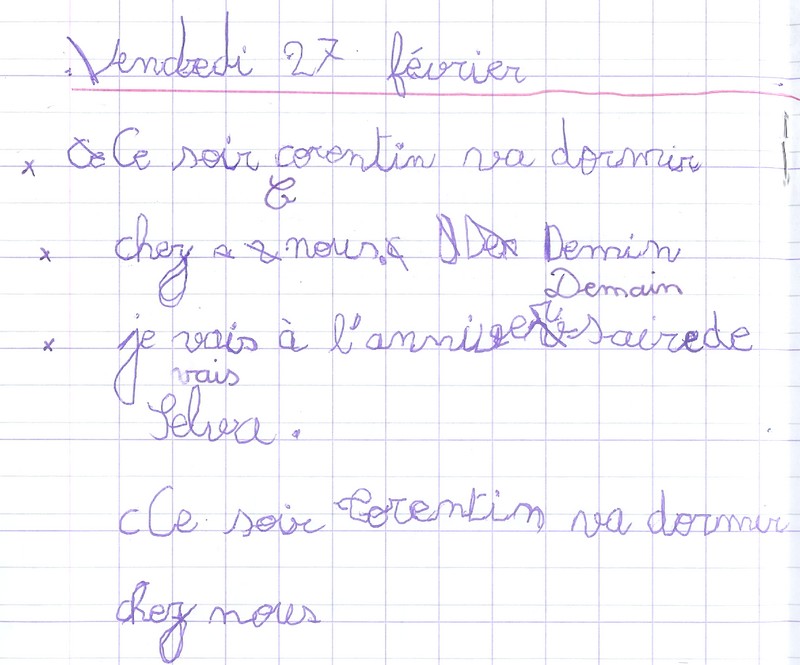 Vendredi 27 février
x Ce Ce soir corentin va dormir
C
x chez nous. De Demin
Demain
x je vais à l'anniversairede
vais
Selva.
cCe soir Corentin va dormir
chez nous